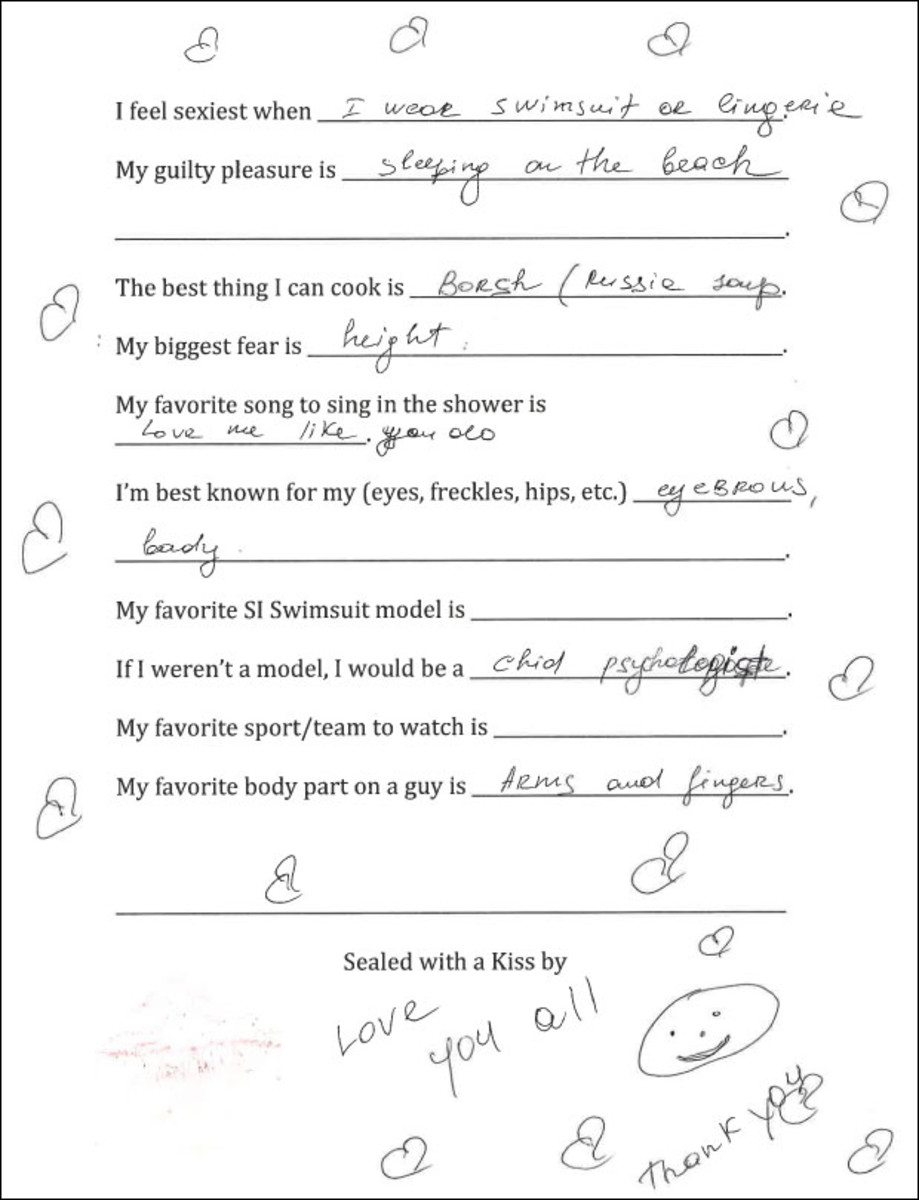 I feel sexiest when I wear swimsuit or lingerie.
My guilty pleasure is sleeping on the beach
.
The best thing I can cook is Borsh (Russia soup.
My biggest fear is height.
My favorite song to sing in the shower is
Love me like you do.
I'm best known for my (eyes, freckles, hips, etc.) eyeBROWS,
body.
My favorite SI Swimsuit model is .
If I weren't a model, I would be a chid psychologist.
My favorite sport/team to watch is .
My favorite body part on a guy is ARMS and fingers.
Sealed with a Kiss by
LOVE you all
Thank you